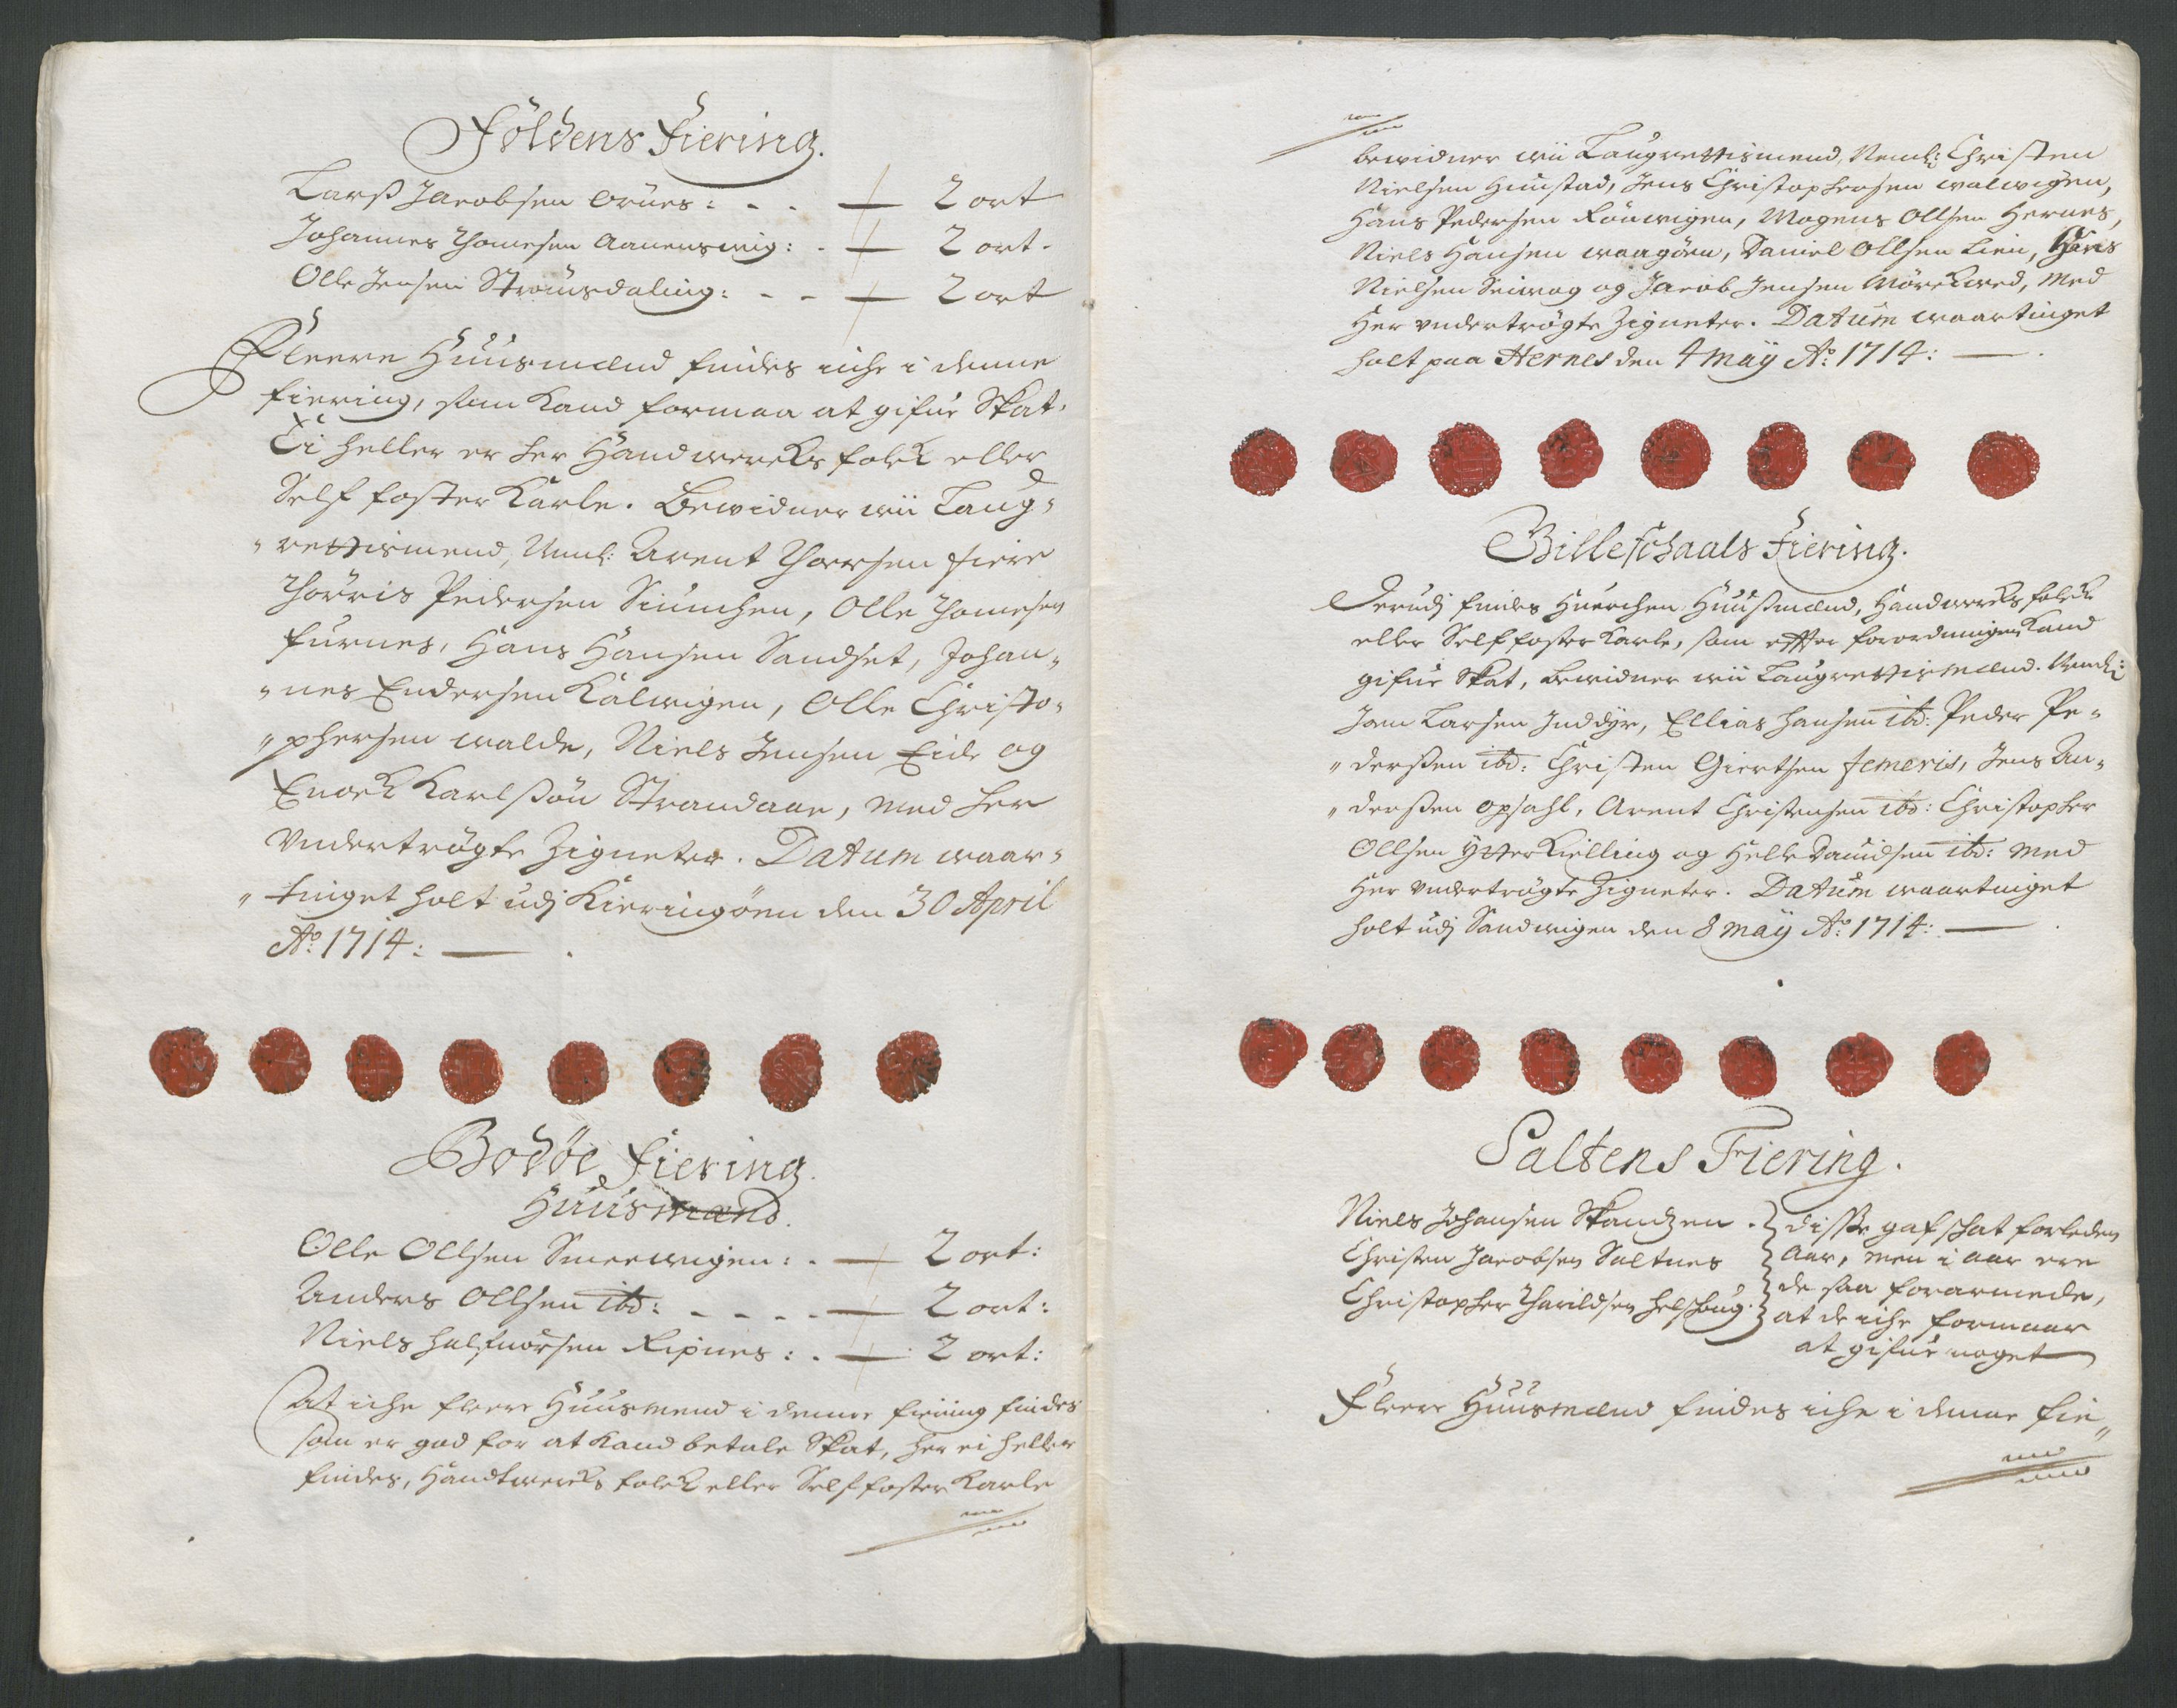 Foldens Fiering.
Larss Jacobsen Brues: - - — 2 ort
Johannes Thomesen Aanenswig: - — 2 ort.
Olle Jensen Strømsdaling: - - — 2 ort
Fleere Huusmænd findes iche i denne
fiering, som kand formaa at gifue Skat.
Ei heller er her Handwercks folck eller
Self foster Karle. Bewidner wii Laug-
"rettismend, Neml: Arent Thorsen fiere
Thorris Pedersen, Olle Thomesen
furnes, Hans Hansen Sandset, Johan-
"nes Endersen Kalwigen, Olle Christo-
"phersen walde, Niels Jensen Eide og
Enock Karlssøn Strandaae, med her
vndertrøgte Zigneter. Datum waar-
"tinget holt udj Kieringøen den 30 April
Ao: 1714: —
Bodøe fiering.
Huusmænd.
Olle Ollsen Smeewigen: - — 2 ort:
Anders Ollsen ibd: - - - - — 2 ort:
Niels Halfuorsen Ripnes: - — 2 ort:
At iche fleere Huusmend i denne fiering findes
som er god for at kand betale Skat, her ei heller
findes, Handtwercks folck eller Self foster Karle
bewidner wii Laugrettismend, Neml: Christen
Nielsen Hunstad, Jens Christophersen walwigen,
Hans Pedersen Rønwigen, Mogens Ollsen Hernes,
Niels Hansen waagøen, Daniel Ollsen Lien, Hans
Nielsen Seiwog og Jacob Jensen Mørckwed, med
Her vndertrøgte Zigneter. Datum waartinget
holt paa Hernes den 4 Maÿ Ao: 1714: —
Billeschaals Fiering.
Derudj findes Huerchen Huusmænd, Handwercks folck
eller Self foster Karle, som effter forordningen kand
gifue Skat, bewidner wii Laugrettismænd. Neml:
Jon Larsen Inddyr, Ellias Hansen ibd: Peder Pe-
"derssen ibd: Christen Giertsen femeris, Jens An-
"derssen opsahl, Arent Christensen ibd: Christopher
Ollsen Ytter Kielling og Helle Dauidsen ibd: med
Her vndertrøgte Zigneter. Datum waartinget
holt udj Sandwigen den 8 Maÿ Ao: 1714: —
Saltens Fiering.
Niels Johansen Skandzen. } disse gaf skat forleden
Christen Jacobsen Saltnes } Aar, men i aar ere
Christopher Tharildsen } de saa forarmede,
at de iche formaar
at gifue noget
Fleere Huusmænd findes iche i denne fie-"